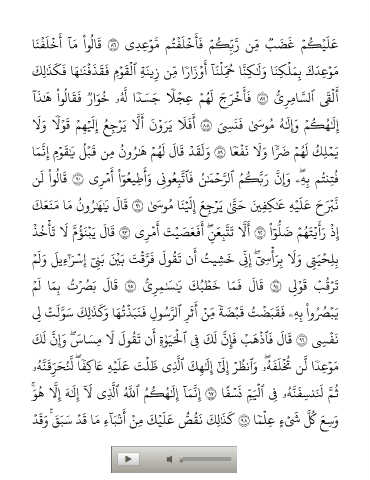 عَلَيْكُمْ غَضَبٌ مِّن رَّبِّكُمْ فَأَخْلَفْتُم مَّوْعِدِى ٨٦ قَالُوا۟ مَآ أَخْلَفْنَا
مَوْعِدَكَ بِمَلْكِنَا وَلَـٰكِنَّا حُمِّلْنَآ أَوْزَارًا مِّن زِينَةِ ٱلْقَوْمِ فَقَذَفْنَـٰهَا فَكَذَٰلِكَ
أَلْقَى ٱلسَّامِرِىُّ ٨٧ فَأَخْرَجَ لَهُمْ عِجْلًا جَسَدًا لَّهُۥ خُوَارٌ فَقَالُوا۟ هَـٰذَآ
إِلَـٰهُكُمْ وَإِلَـٰهُ مُوسَىٰ فَنَسِىَ ٨٨ أَفَلَا يَرَوْنَ أَلَّا يَرْجِعُ إِلَيْهِمْ قَوْلًا وَلَا
يَمْلِكُ لَهُمْ ضَرًّا وَلَا نَفْعًا ٨٩ وَلَقَدْ قَالَ لَهُمْ هَـٰرُونُ مِن قَبْلُ يَـٰقَوْمِ إِنَّمَا
فُتِنتُم بِهِۦ ۖ وَإِنَّ رَبَّكُمُ ٱلرَّحْمَـٰنُ فَٱتَّبِعُونِى وَأَطِيعُوٓا۟ أَمْرِى ٩٠ قَالُوا۟ لَن
نَّبْرَحَ عَلَيْهِ عَـٰكِفِينَ حَتَّىٰ يَرْجِعَ إِلَيْنَا مُوسَىٰ ٩١ قَالَ يَـٰهَـٰرُونُ مَا مَنَعَكَ
إِذْ رَأَيْتَهُمْ ضَلُّوٓا۟ ٩٢ أَلَّا تَتَّبِعَنِ ۖ أَفَعَصَيْتَ أَمْرِى ٩٣ قَالَ يَبْنَؤُمَّ لَا تَأْخُذْ
بِلِحْيَتِى وَلَا بِرَأْسِىٓ ۖ إِنِّى خَشِيتُ أَن تَقُولَ فَرَّقْتَ بَيْنَ بَنِىٓ إِسْرَٰٓءِيلَ وَلَمْ
تَرْقُبْ قَوْلِى ٩٤ قَالَ فَمَا خَطْبُكَ يَـٰسَـٰمِرِىُّ ٩٥ قَالَ بَصُرْتُ بِمَا لَمْ
يَبْصُرُوا۟ بِهِۦ فَقَبَضْتُ قَبْضَةً مِّنْ أَثَرِ ٱلرَّسُولِ فَنَبَذْتُهَا وَكَذَٰلِكَ سَوَّلَتْ لِى
نَفْسِى ٩٦ قَالَ فَٱذْهَبْ فَإِنَّ لَكَ فِى ٱلْحَيَوٰةِ أَن تَقُولَ لَا مِسَاسَ ۖ وَإِنَّ لَكَ
مَوْعِدًا لَّن تُخْلَفَهُۥ ۖ وَٱنظُرْ إِلَىٰٓ إِلَـٰهِكَ ٱلَّذِى ظَلْتَ عَلَيْهِ عَاكِفًا ۖ لَّنُحَرِّقَنَّهُۥ
ثُمَّ لَنَنسِفَنَّهُۥ فِى ٱلْيَمِّ نَسْفًا ٩٧ إِنَّمَآ إِلَـٰهُكُمُ ٱللَّهُ ٱلَّذِى لَآ إِلَـٰهَ إِلَّا هُوَ ۚ
وَسِعَ كُلَّ شَىْءٍ عِلْمًا ٩٨ كَذَٰلِكَ نَقُصُّ عَلَيْكَ مِنْ أَنۢبَآءِ مَا قَدْ سَبَقَ ۚ وَقَدْ